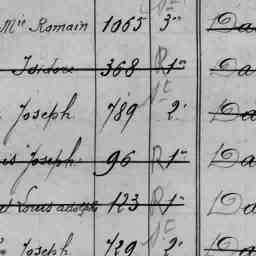 Mie Romain 1065 3e
Isidore 368 R 1e Da
Joseph 789 2e Da
is Joseph 96 R 1e Da
et Louis adolphe 123 R 1e Da
Joseph 729 2e Da